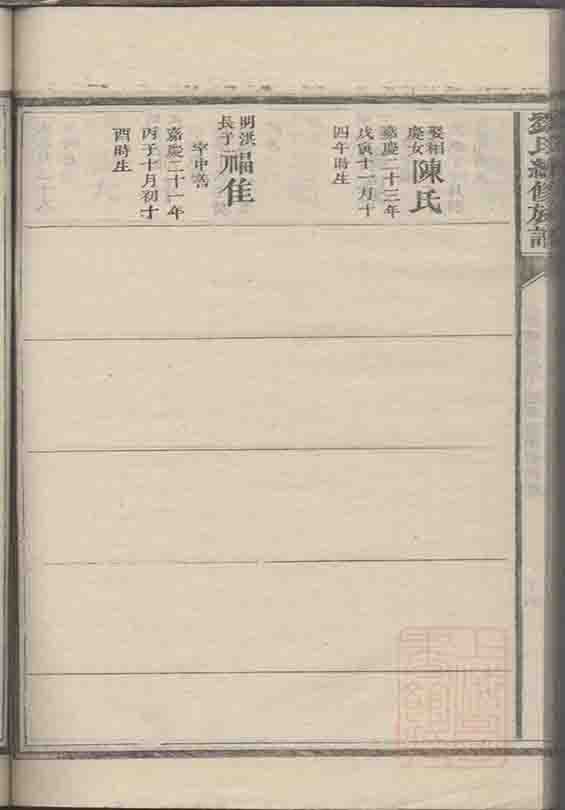 劉氏續修族譜
娶相
慶女
陳氏
嘉慶二十三年
戊寅十一月十
四午時生
明洪
長子
福隹
字中善
嘉慶二十一年
丙子十月初十
酉時生